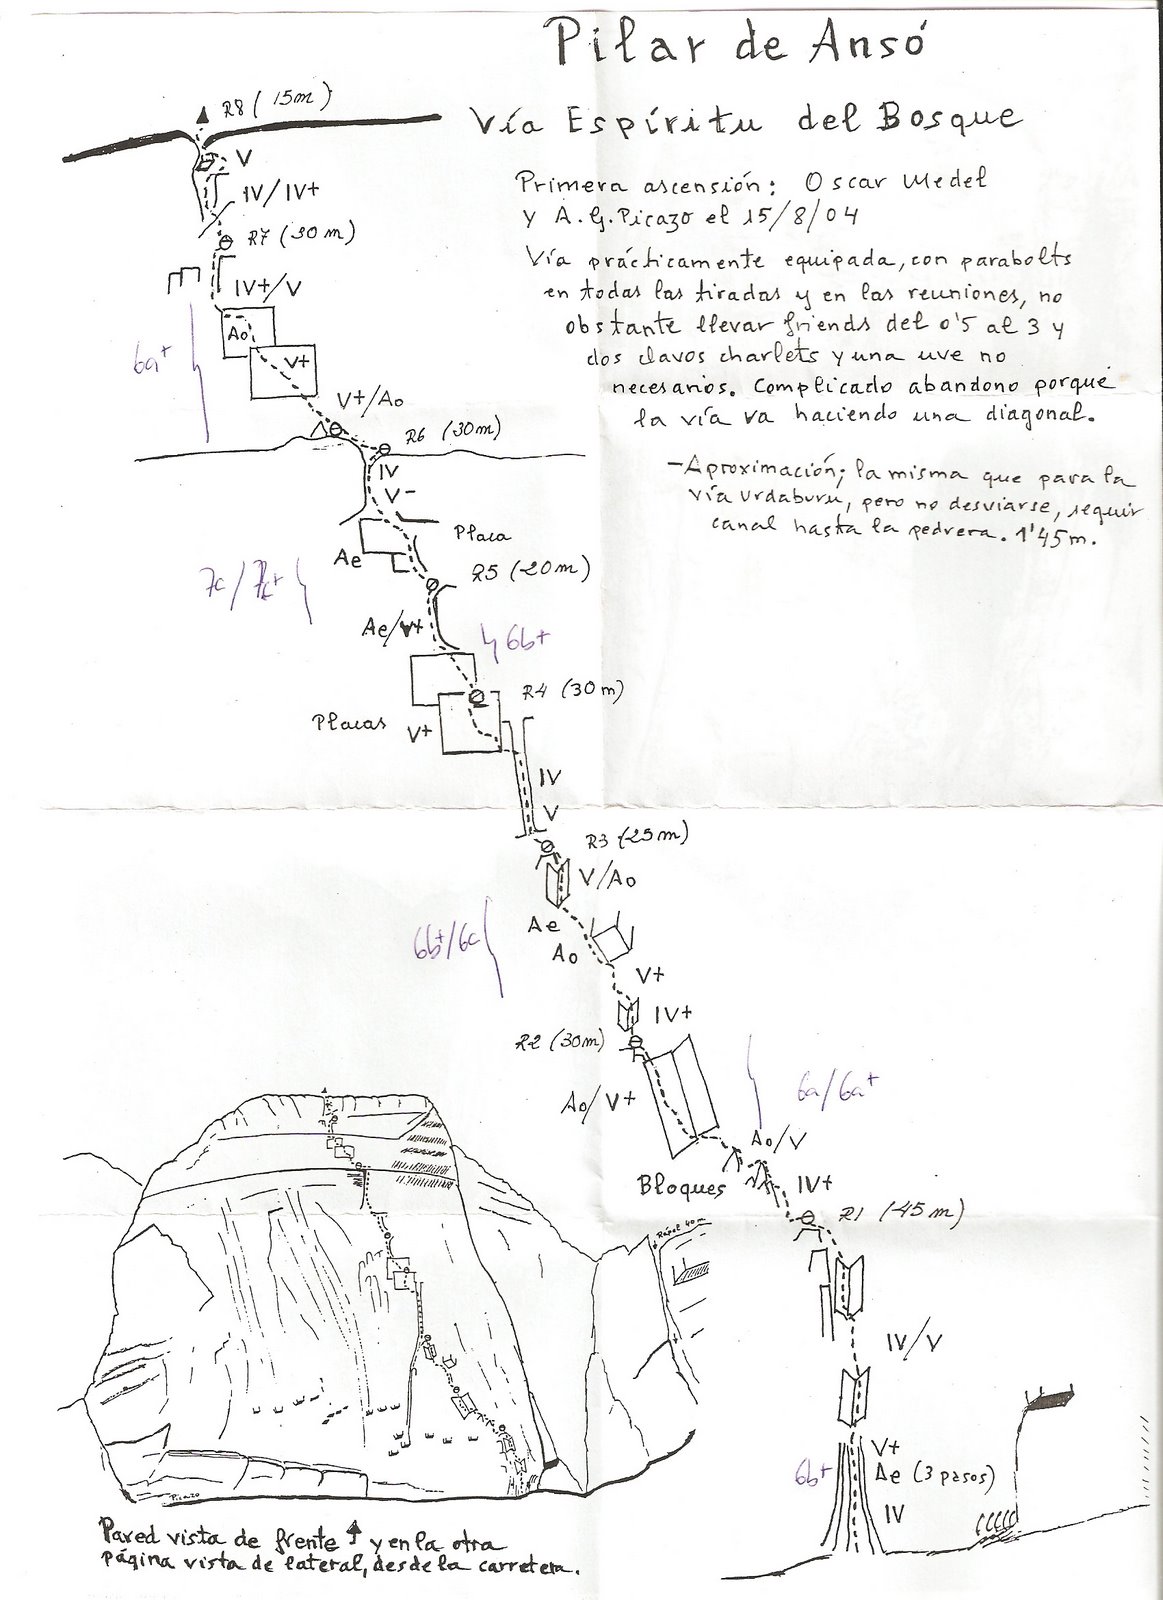 Pilar de Ansó
Vía Espíritu del Bosque
Primera ascensión: Oscar Medel
y A.G.Picazo el 15/8/04
Vía prácticamente equipada, con parabolts
en todas las tiradas y en las reuniones, no
obstante llevar friends del 0'5 al 3 y
dos clavos charlets y una uve no
necesarios. Complicado abandono porque
la vía va haciendo una diagonal.
-Aproximación; la misma que para la
vía Urdaburu, pero no desviarse, seguir
canal hasta la pedrera. 1'45m.
R8 (15m)
V
IV/IV+
R7 (30m)
IV+/V
Ao
6a+
V+
V+/Ao
R6 (30m)
IV
V-
Placa
Ae
R5 (20m)
7c/7c+
Ae/V+
6b+
R4 (30m)
Placas
V+
IV
V
R3 (25m)
V/Ao
Ae
6b+/6c
Ao
V+
IV+
R2 (30m)
Ao/V+
6a/6a+
Ao/V
Bloques
IV+
R1 (45m)
Rápel 40m
IV/V
V+
6b+
Ae (3 pasos)
IV
Picazo
Pared vista de frente y en la otra
página vista de lateral, desde la carretera.